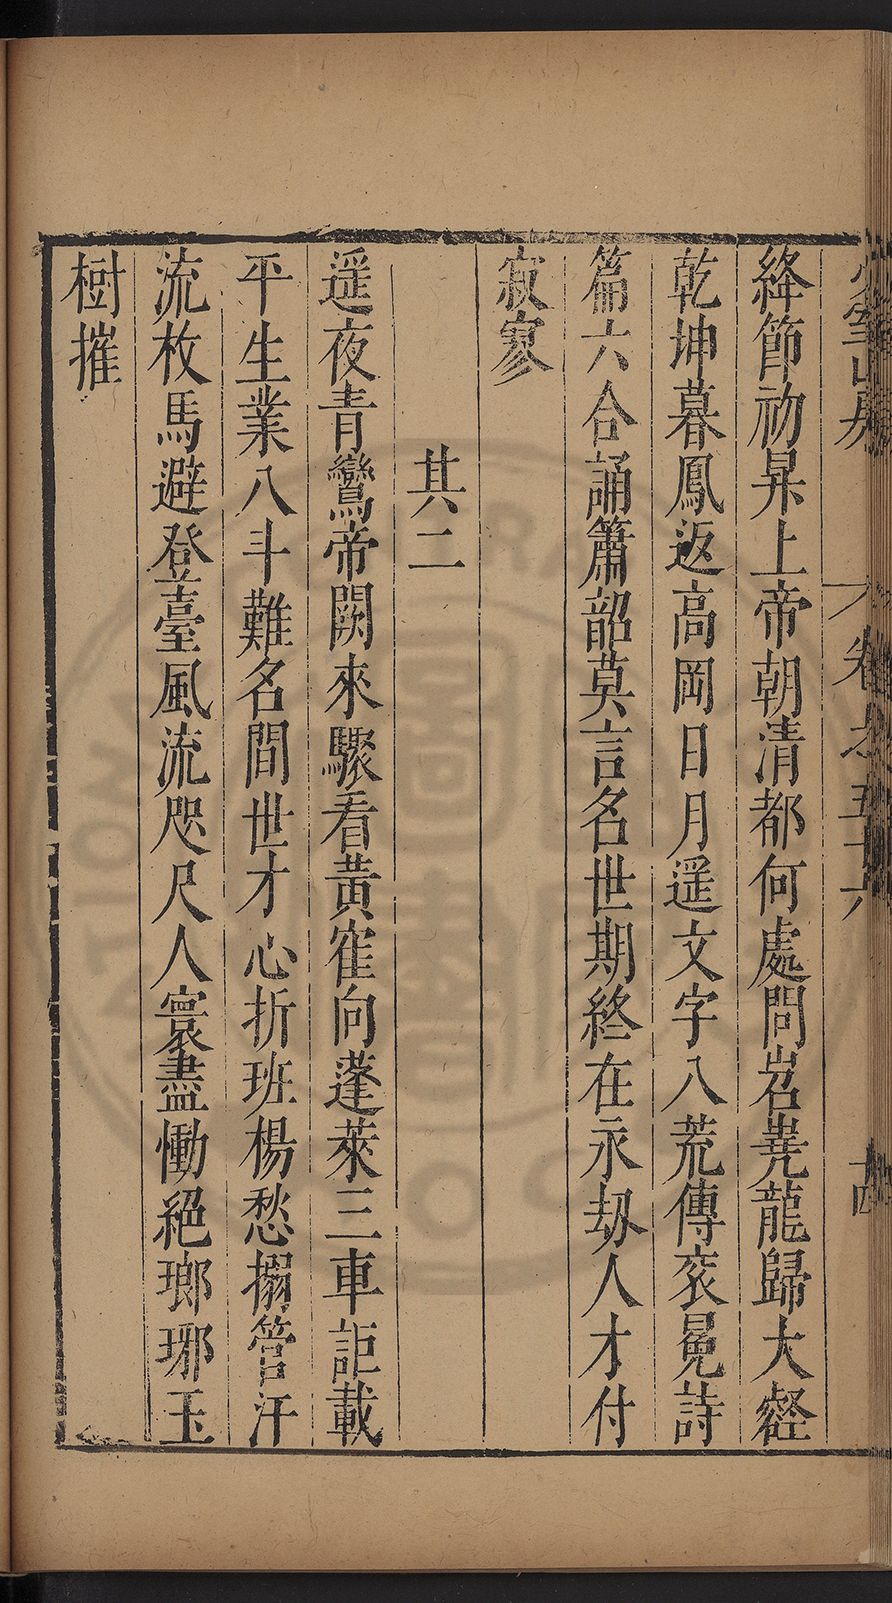 少室山房
卷之五十六
十四
絳節初昇上帝朝清都何處問岧嶤龍歸大壑
乾坤暮鳳返高岡日月遥文字八荒傳衮冕詩
篇六合誦簫韶莫言名世期終在永刼人才付
寂寥
其二
遥夜青鸞帝闕來驟看黄寉向蓬萊三車詎載
平生業八斗難名間世才心折班楊愁搦管汗
流枚馬避登臺風流咫尺人寰盡慟絕瑯琊玉
樹摧